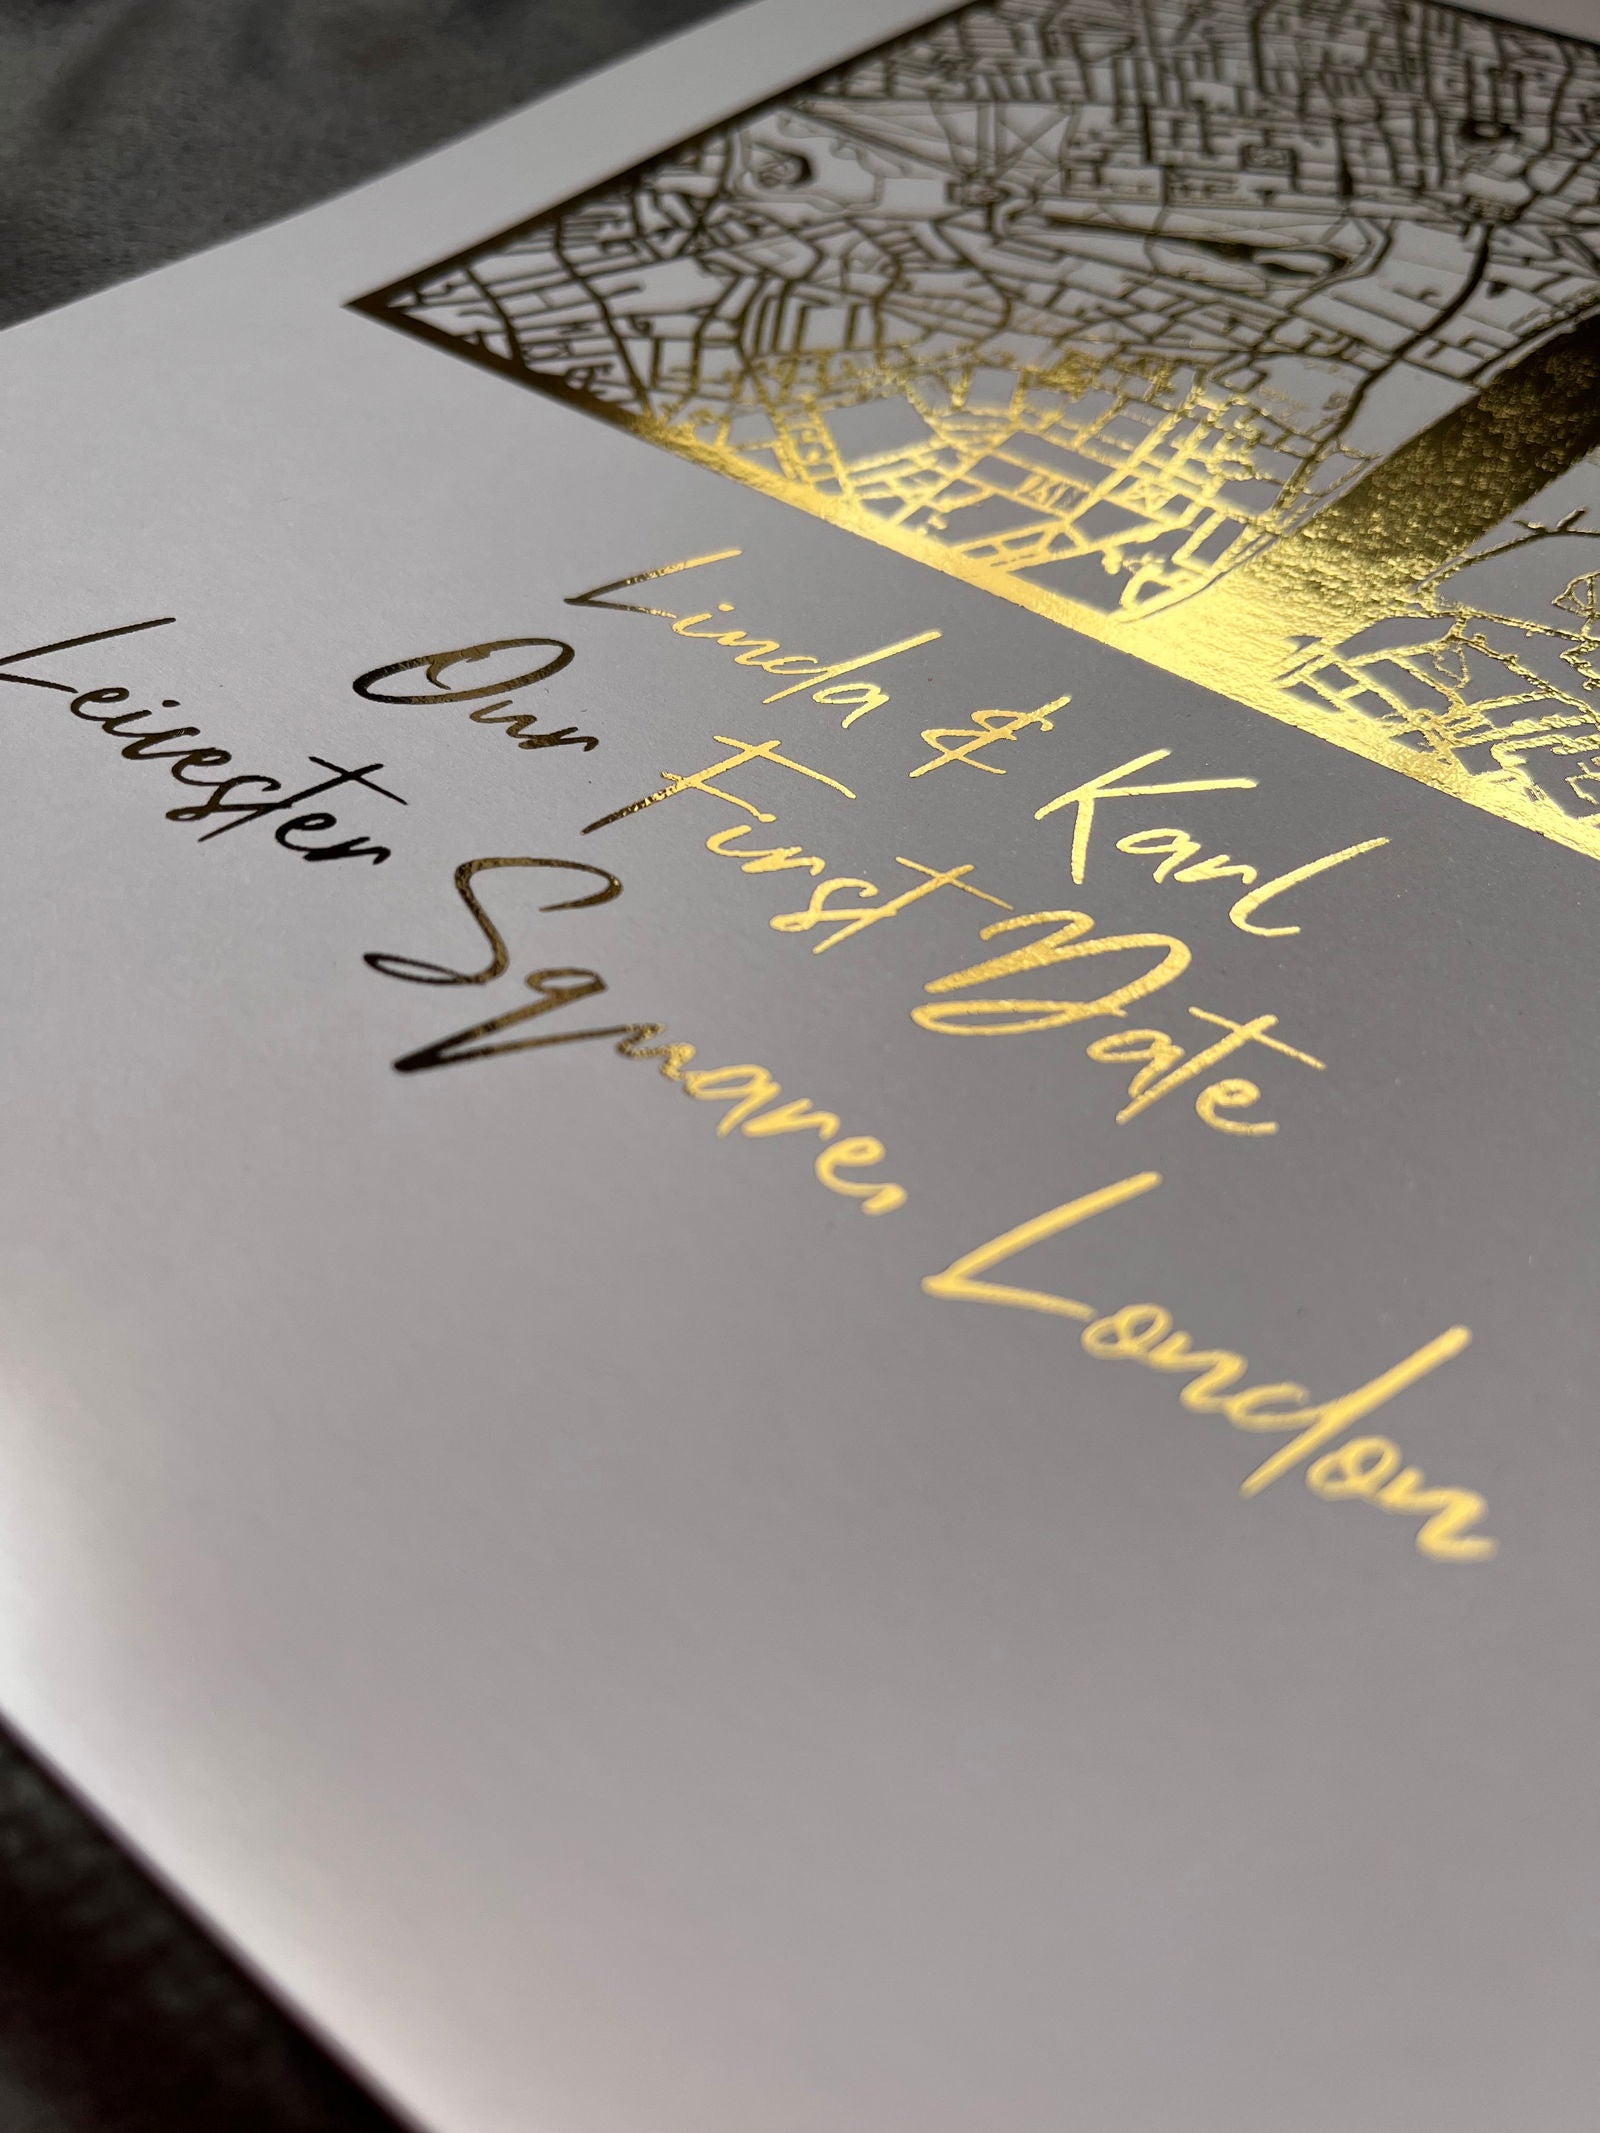 Linda & Karl
Our First Date
Leicester Square, London